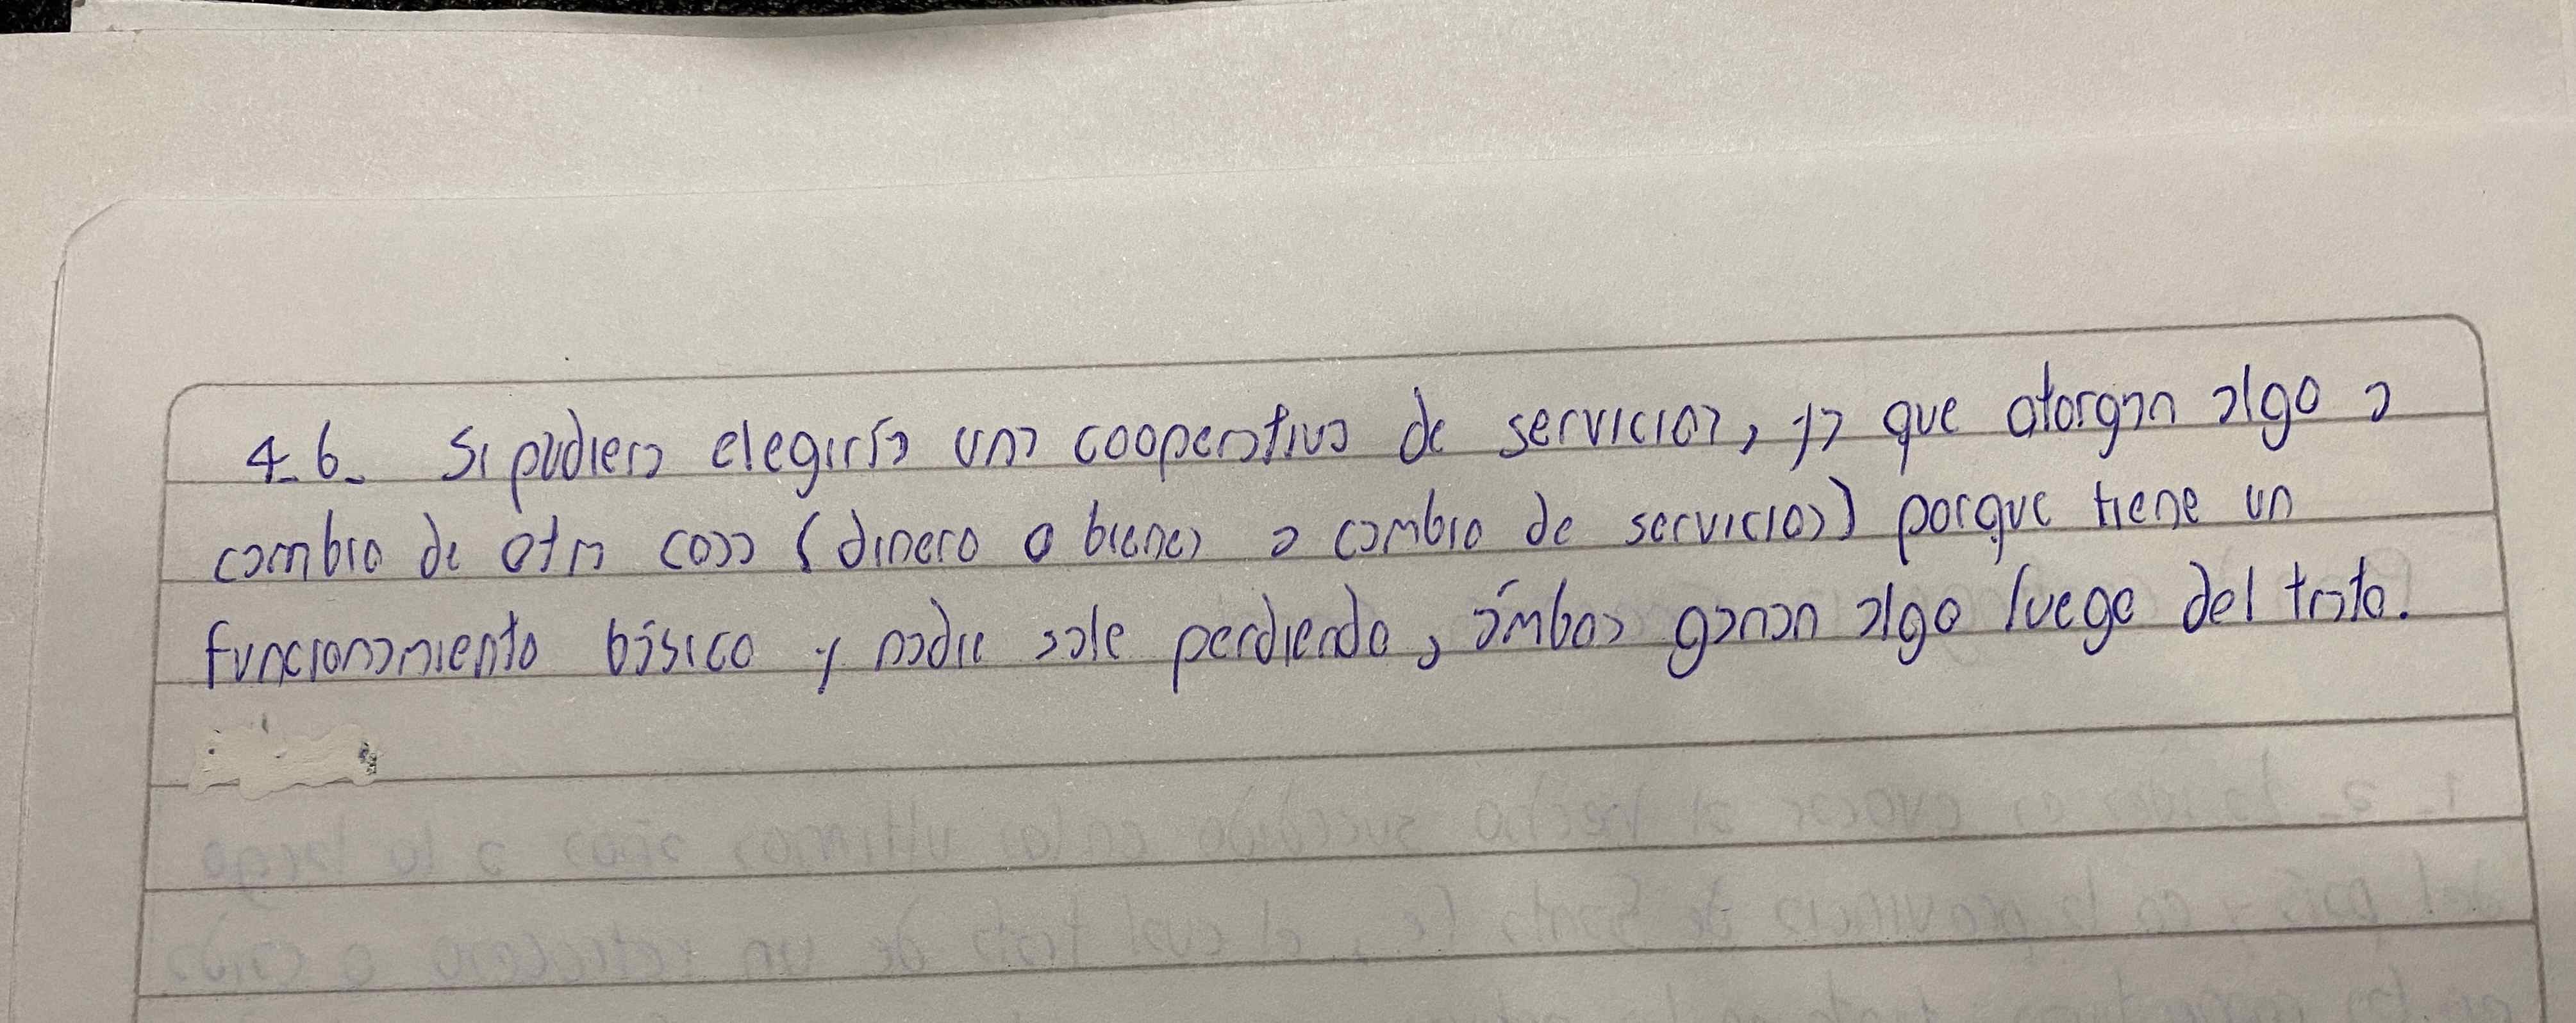 4_6_ Si pudiera elegiría una cooperativa de servicios, ya que otorgan algo a
cambio de otra cosa (dinero o bienes a cambio de servicios) porque tiene un
funcionamiento básico y nadie sale perdiendo, ámbos ganan algo luego del trato.